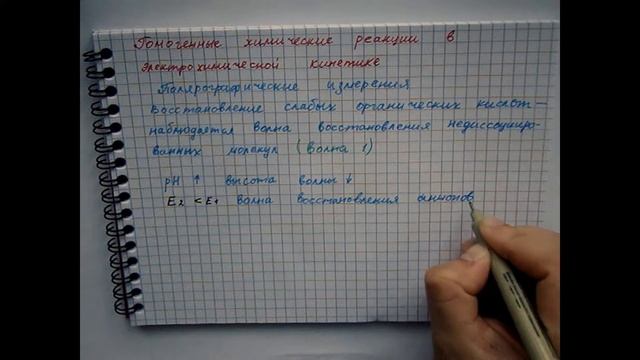 Гомогенные химические реакции в
электрохимической кинетике
Полярографические измерения
Восстановление слабых органических кислот —
наблюдается волна восстановления недиссоцииро-
ванных молекул (волна 1)
pH ↑ высота волны ↓
E₂ < E₁ волна восстановления анионов